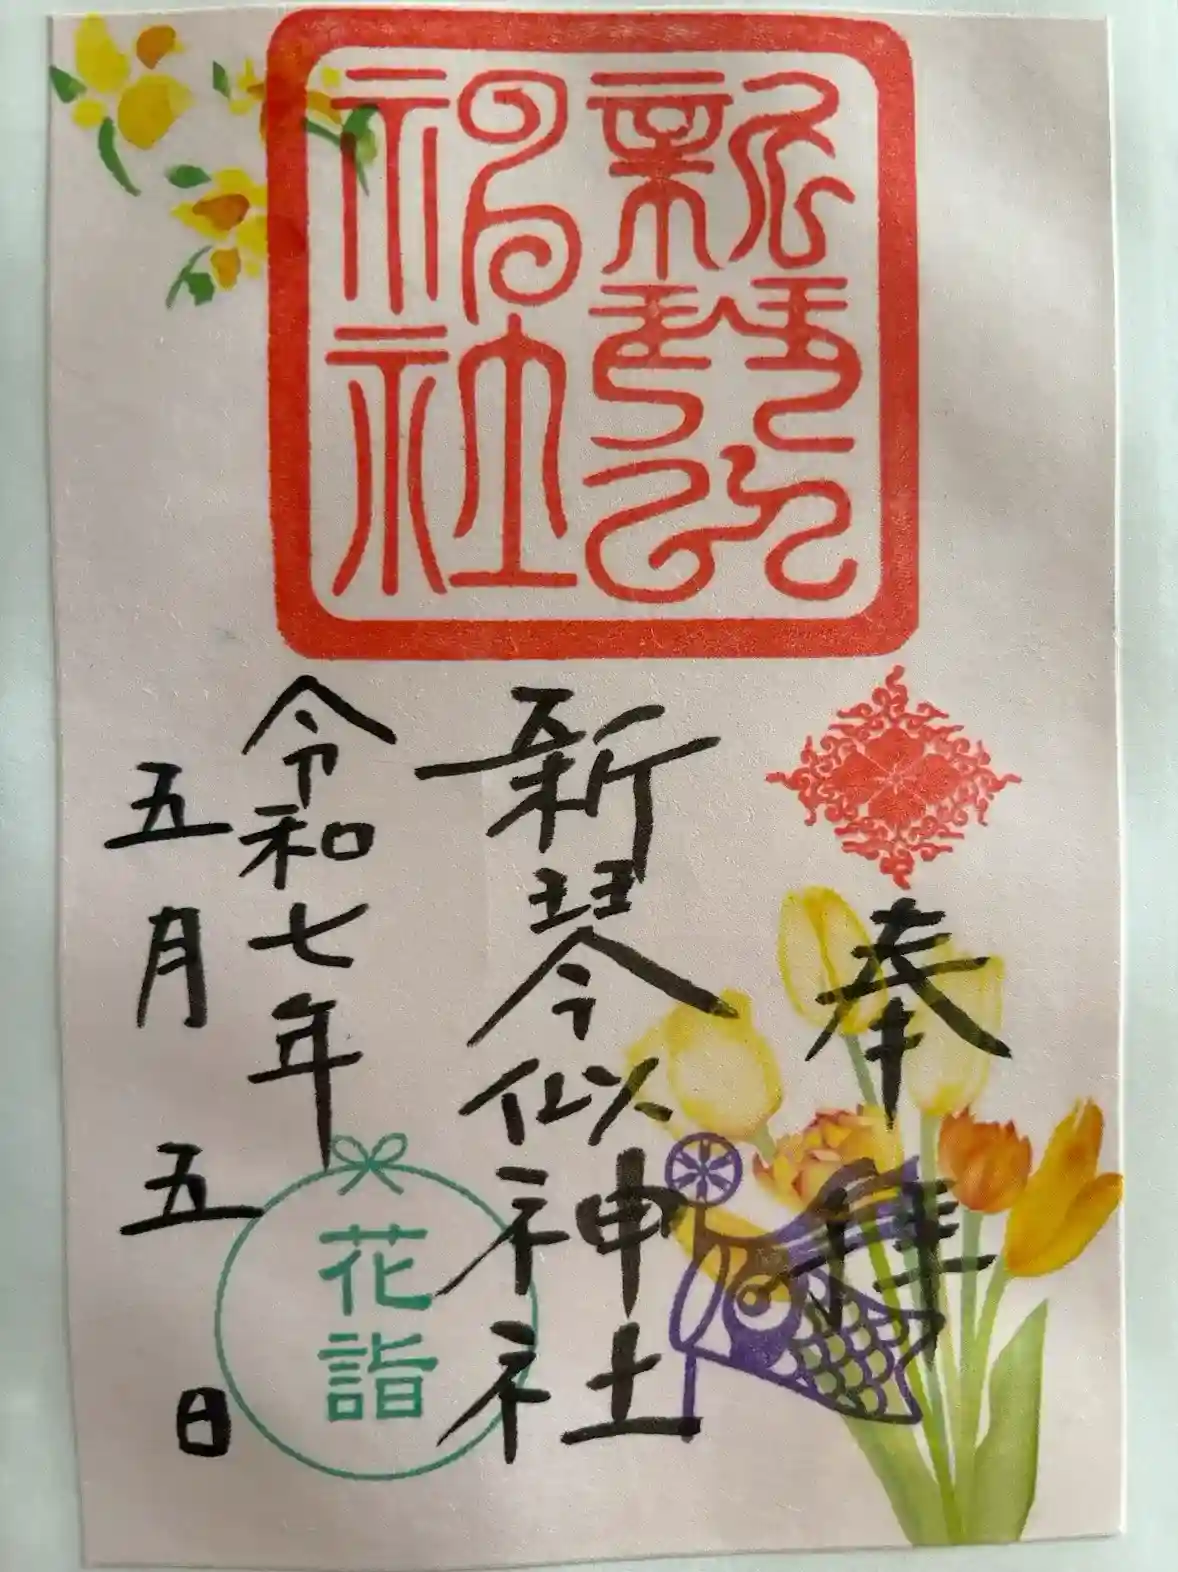 新琴似
神社
奉拝
新琴似神社
令和七年
五月五日
花詣